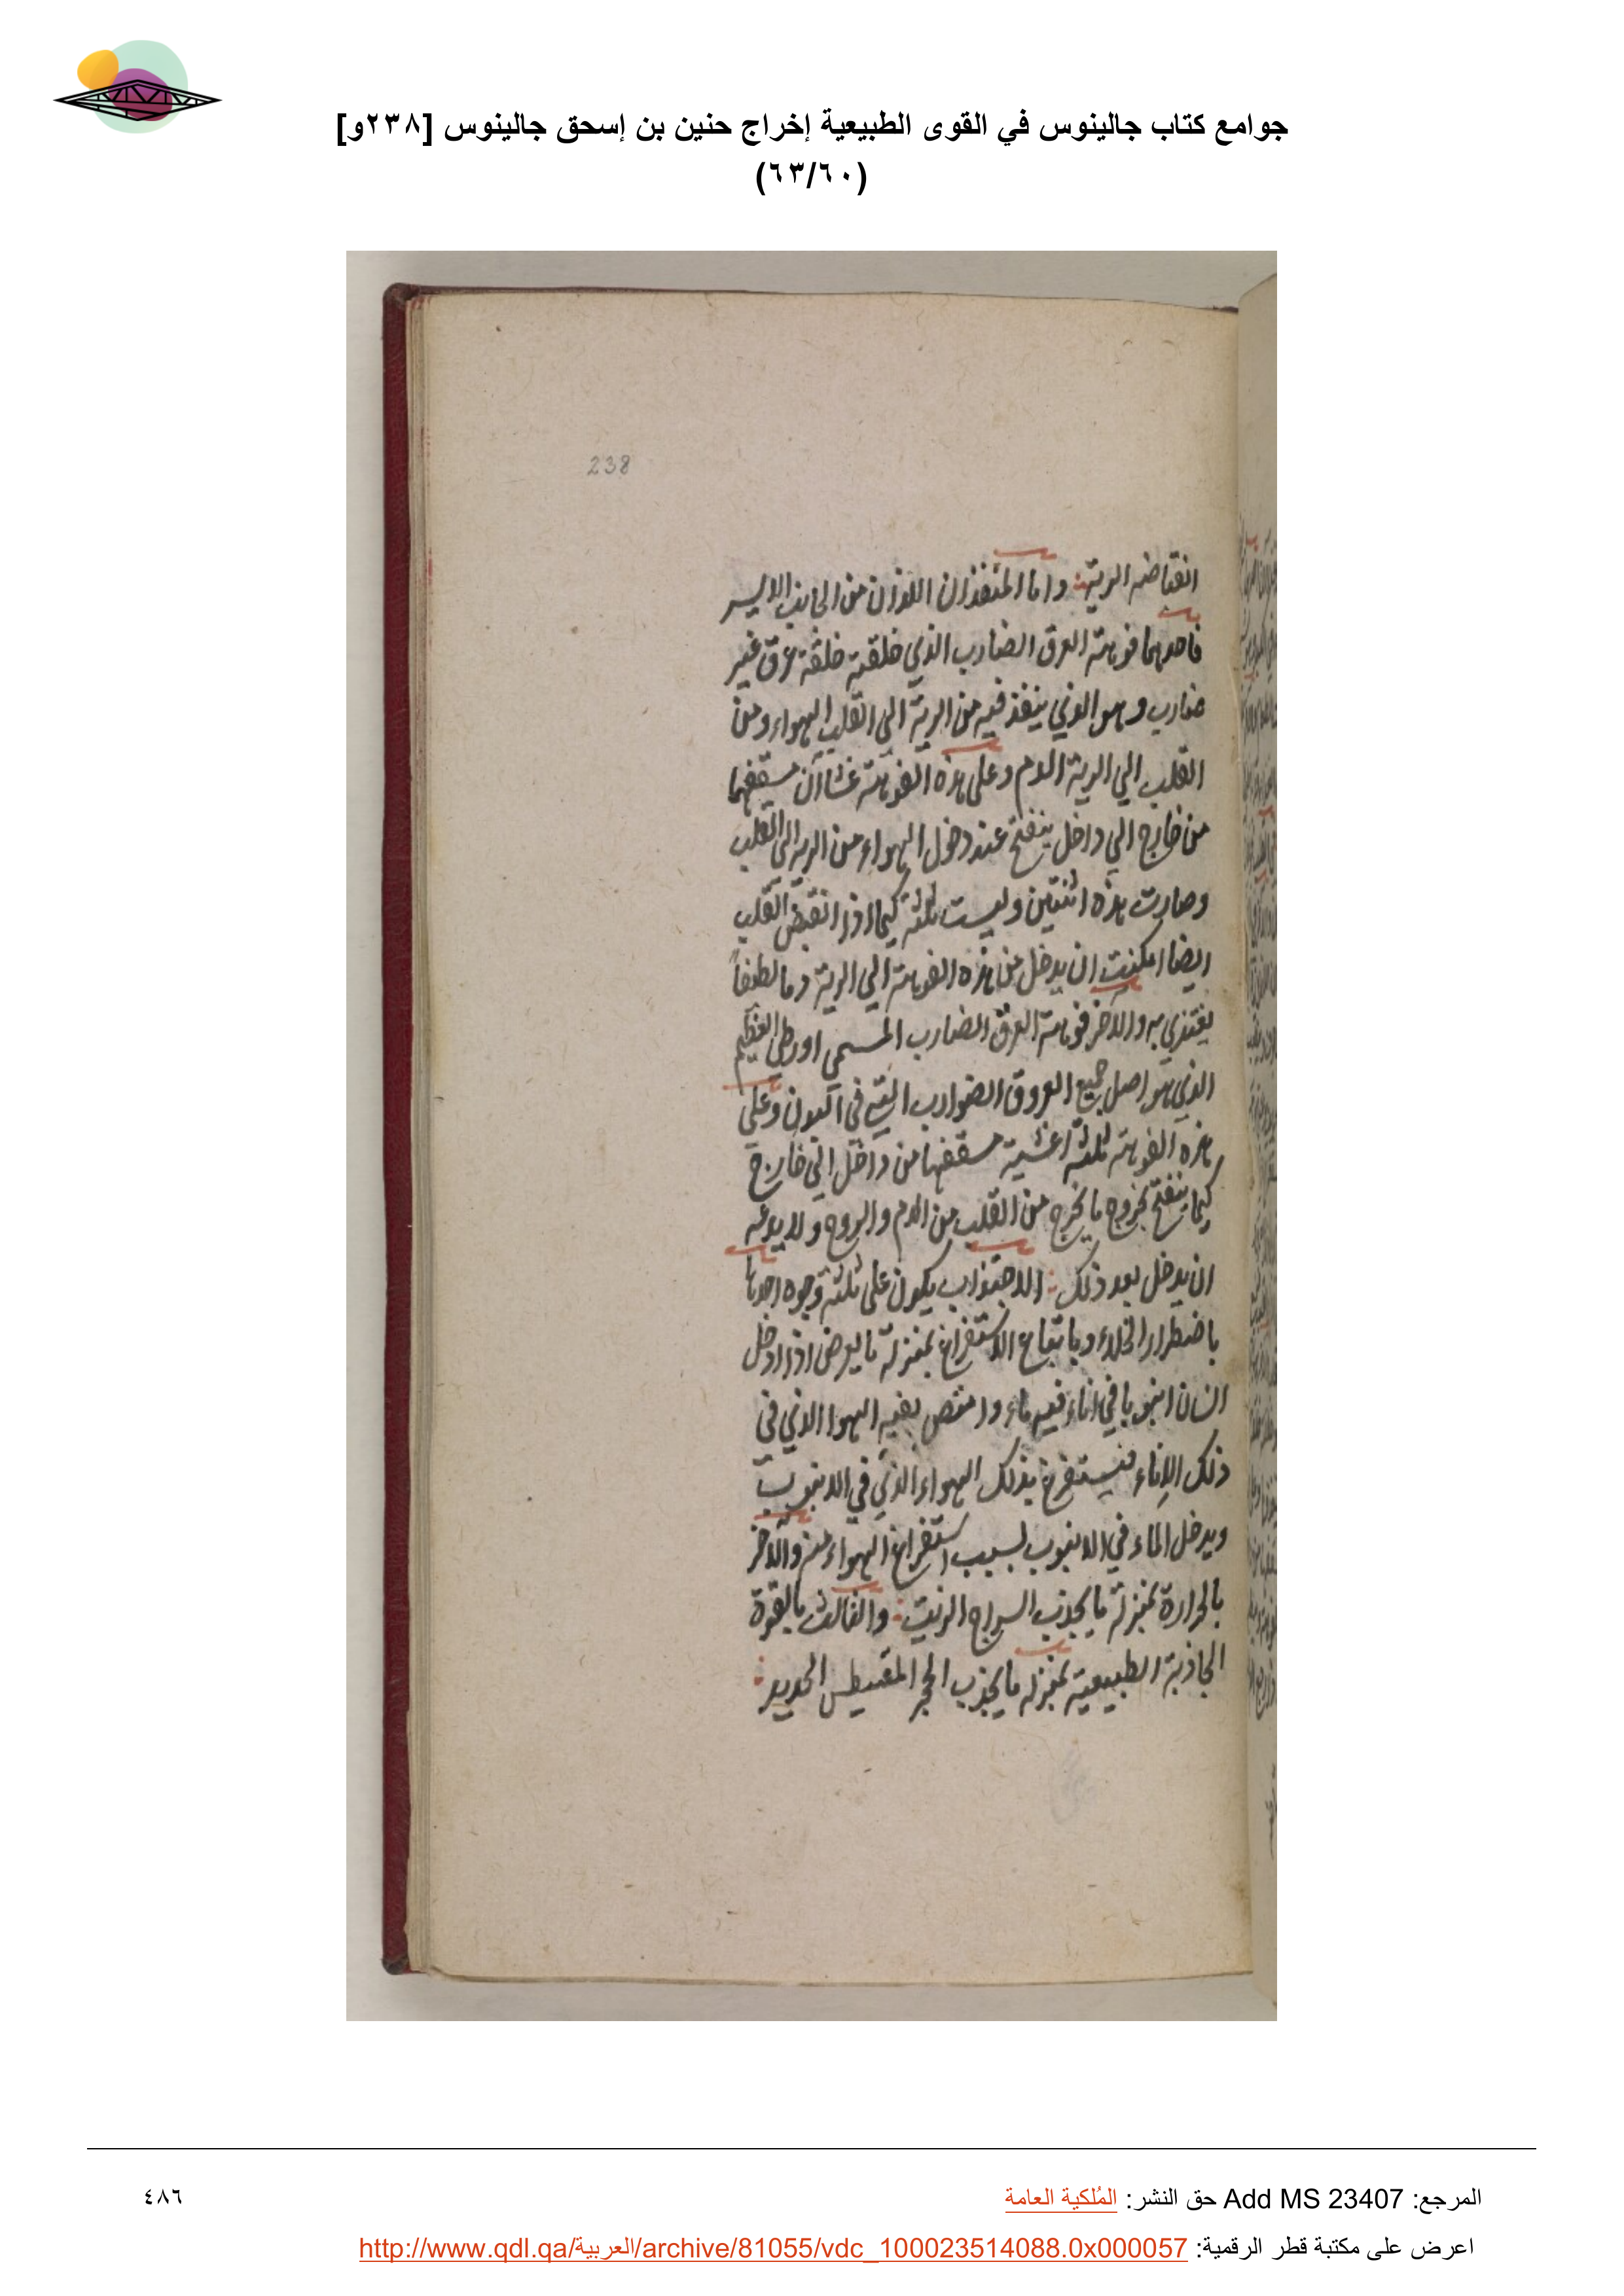 جوامع كتاب جالينوس في القوى الطبيعية إخراج حنين بن إسحق جالينوس [٢٣٨و]
(٦٣/٦٠)
238
انقباضه الرية واما المنفذان اللذان من الجانب الايسر
فاحدهما فوهة العرق الضارب الذي خلقته خلقة عرق غير
ضارب وهو الذي ينفذ فيه من الرية الى القلب الهواء ومن
القلب الي الرية الدم وعلى هذه الفوهة غشاآن مسقفهما
من خارج الي داخل ينفتح عند دخول الهواء من الرية الى القلب
وصارت هذه اثنتين وليست ثلثة كيما اذا انقبض القلب
ايضا امكنت ان يدخل من هذه الفوهة الي الرية دما لطيفاً
يغتذي به والآخر فوهة العرق الضارب المسمى اورطى العظيم
الذي هو اصل جميع العروق الضوارب التي في البدن وعلي
هذه الفوهة ثلثة اغشية مسقفها من داخل الى خارج
كيما ينفتح بخروج ما يخرج من القلب من الدم والروح ولا يدعه
ان يدخل بعد ذلك : الاجتذاب يكون على ثلثة وجوه احدها
باضطرار الخلاء وباتباع الاستفراغ بمنزلة ما يعرض اذا ادخل
انسان انبوبا في اناء فيه ماء وامتص بفيه الهوا الذي في
ذلك الاناء فيستفرغ بذلك الهواء الذي في الانبوب
ويدخل الماء في الانبوب بسبب استفراغ الهواء منه والآخر
بالحرارة بمنزلة ما يجذب السراج الزيت : والثالث بالقوة
الجاذبة الطبيعية بمنزله ما يجذب الحجر المقنيطس الحديد :
المرجع: Add MS 23407 حق النشر: المُلكية العامة
٤٨٦
اعرض على مكتبة قطر الرقمية: http://www.qdl.qa/العربية/archive/81055/vdc_100023514088.0x000057